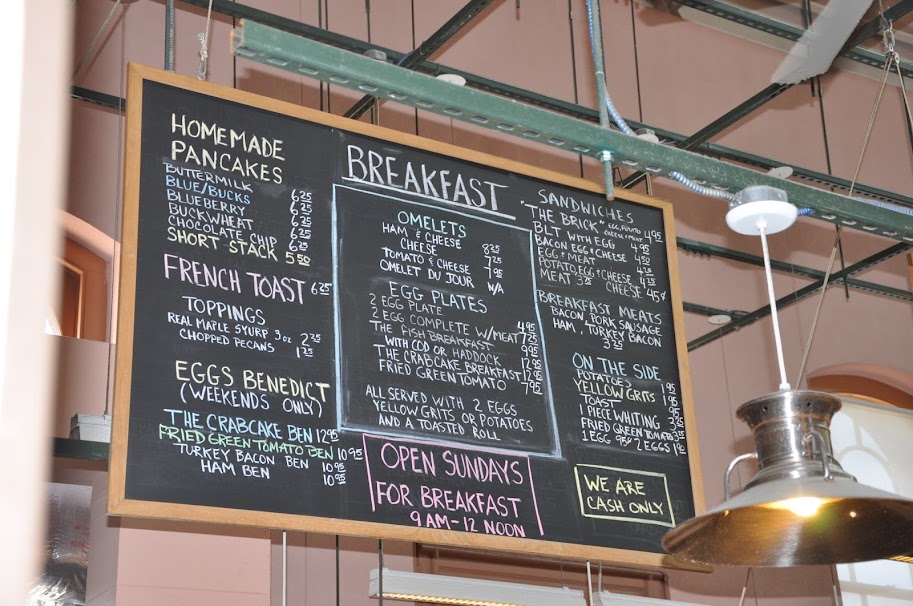 HOMEMADE
PANCAKES
BUTTERMILK 6.25
BLUE/BUCKS 6.25
BLUEBERRY 6.25
BUCKWHEAT 6.25
CHOCOLATE CHIP 6.25
SHORT STACK 5.50
FRENCH TOAST 6.25
TOPPINGS
REAL MAPLE SYURP 3 oz 2.25
CHOPPED PECANS 1.25
EGGS BENEDICT
(WEEKENDS ONLY)
THE CRABCAKE BEN 12.95
FRIED GREEN TOMATO BEN 10.95
TURKEY BACON BEN 10.95
HAM BEN 10.95
BREAKFAST
OMELETS
HAM & CHEESE 8.25
CHEESE 7.25
TOMATO & CHEESE 7.95
OMELET DU JOUR N/A
EGG PLATES
2 EGG PLATE 4.95
2 EGG COMPLETE W/MEAT 7.25
THE FISH BREAKFAST
WITH COD OR HADDOCK 9.95
THE CRABCAKE BREAKFAST 12.95
FRIED GREEN TOMATO 7.95
ALL SERVED WITH 2 EGGS
YELLOW GRITS OR POTATOES
AND A TOASTED ROLL
OPEN SUNDAYS
FOR BREAKFAST
9 AM - 12 NOON
SANDWICHES
"THE BRICK" EGG, POTATO CHEESE & MEAT 4.95
BLT WITH EGG 4.95
BACON EGG & CHEESE 4.50
EGG & MEAT
POTATO, EGG & CHEESE 4.25
MEAT 3.25 CHEESE 45¢
BREAKFAST MEATS
BACON, PORK SAUSAGE
HAM, TURKEY BACON
3.25
ON THE SIDE
POTATOES 1.95
YELLOW GRITS 1.95
TOAST .95
1 PIECE WHITING 3.25
FRIED GREEN TOMATO 3.25
1 EGG 95¢ 2 EGGS
WE ARE
CASH ONLY